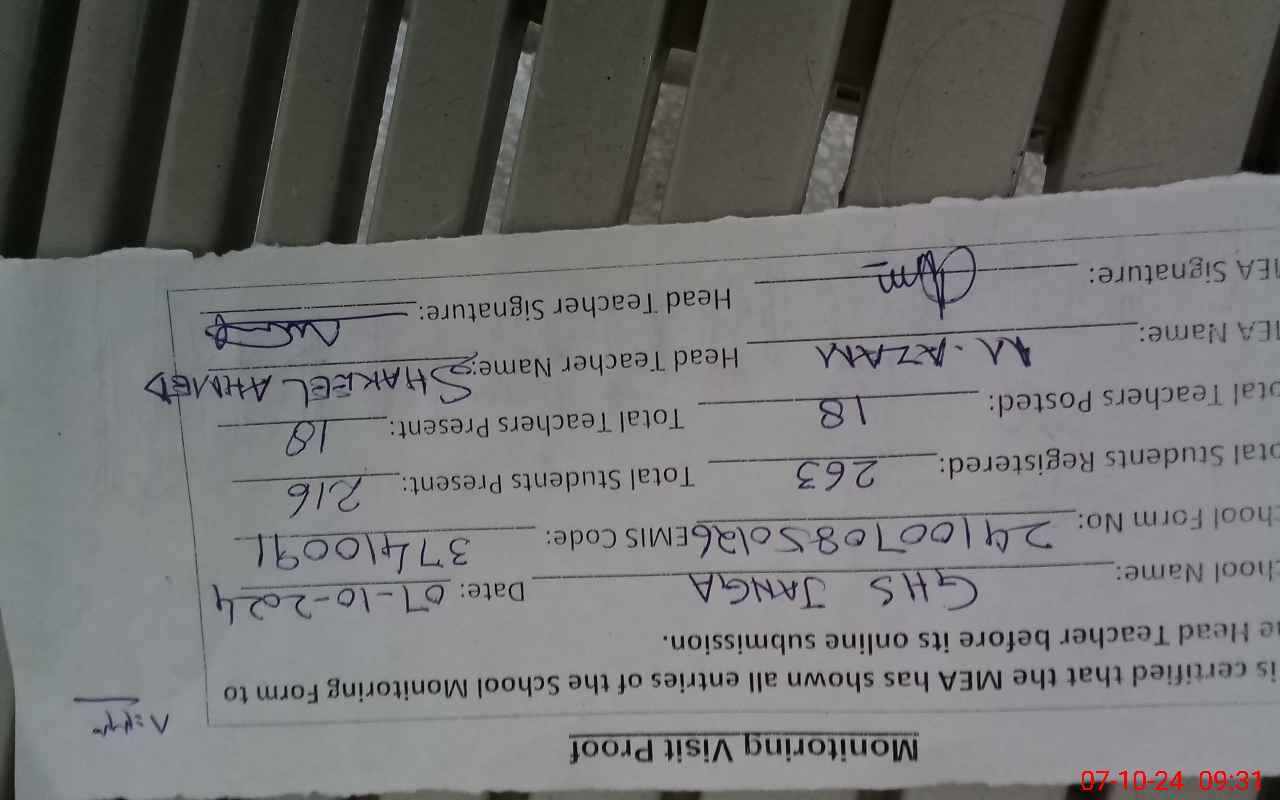 Monitoring Visit Proof
is certified that the MEA has shown all entries of the School Monitoring Form to
e Head Teacher before its online submission.
chool Name: GHS JANGA Date: 07-10-2024
hool Form No: 2410070850126 EMIS Code: 37410091
otal Students Registered: 263 Total Students Present: 216
otal Teachers Posted: 18 Total Teachers Present: 18
MEA Name: M. AZAM Head Teacher Name: SHAKEEL AHMED
MEA Signature: Head Teacher Signature:
07-10-24 09:31